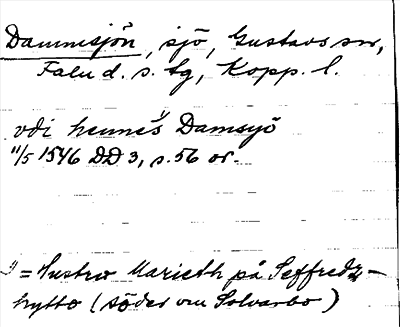 Dammsjön, sjö, Gustavs sn,
Falu d. s. tg, Kopp. l.
vdi hennes 1) Damsyö
11/5 1546 DD 3, s. 56 or.
1) = Hustru Marieth på Seffredz-
hytto (söder om Solvarbo)